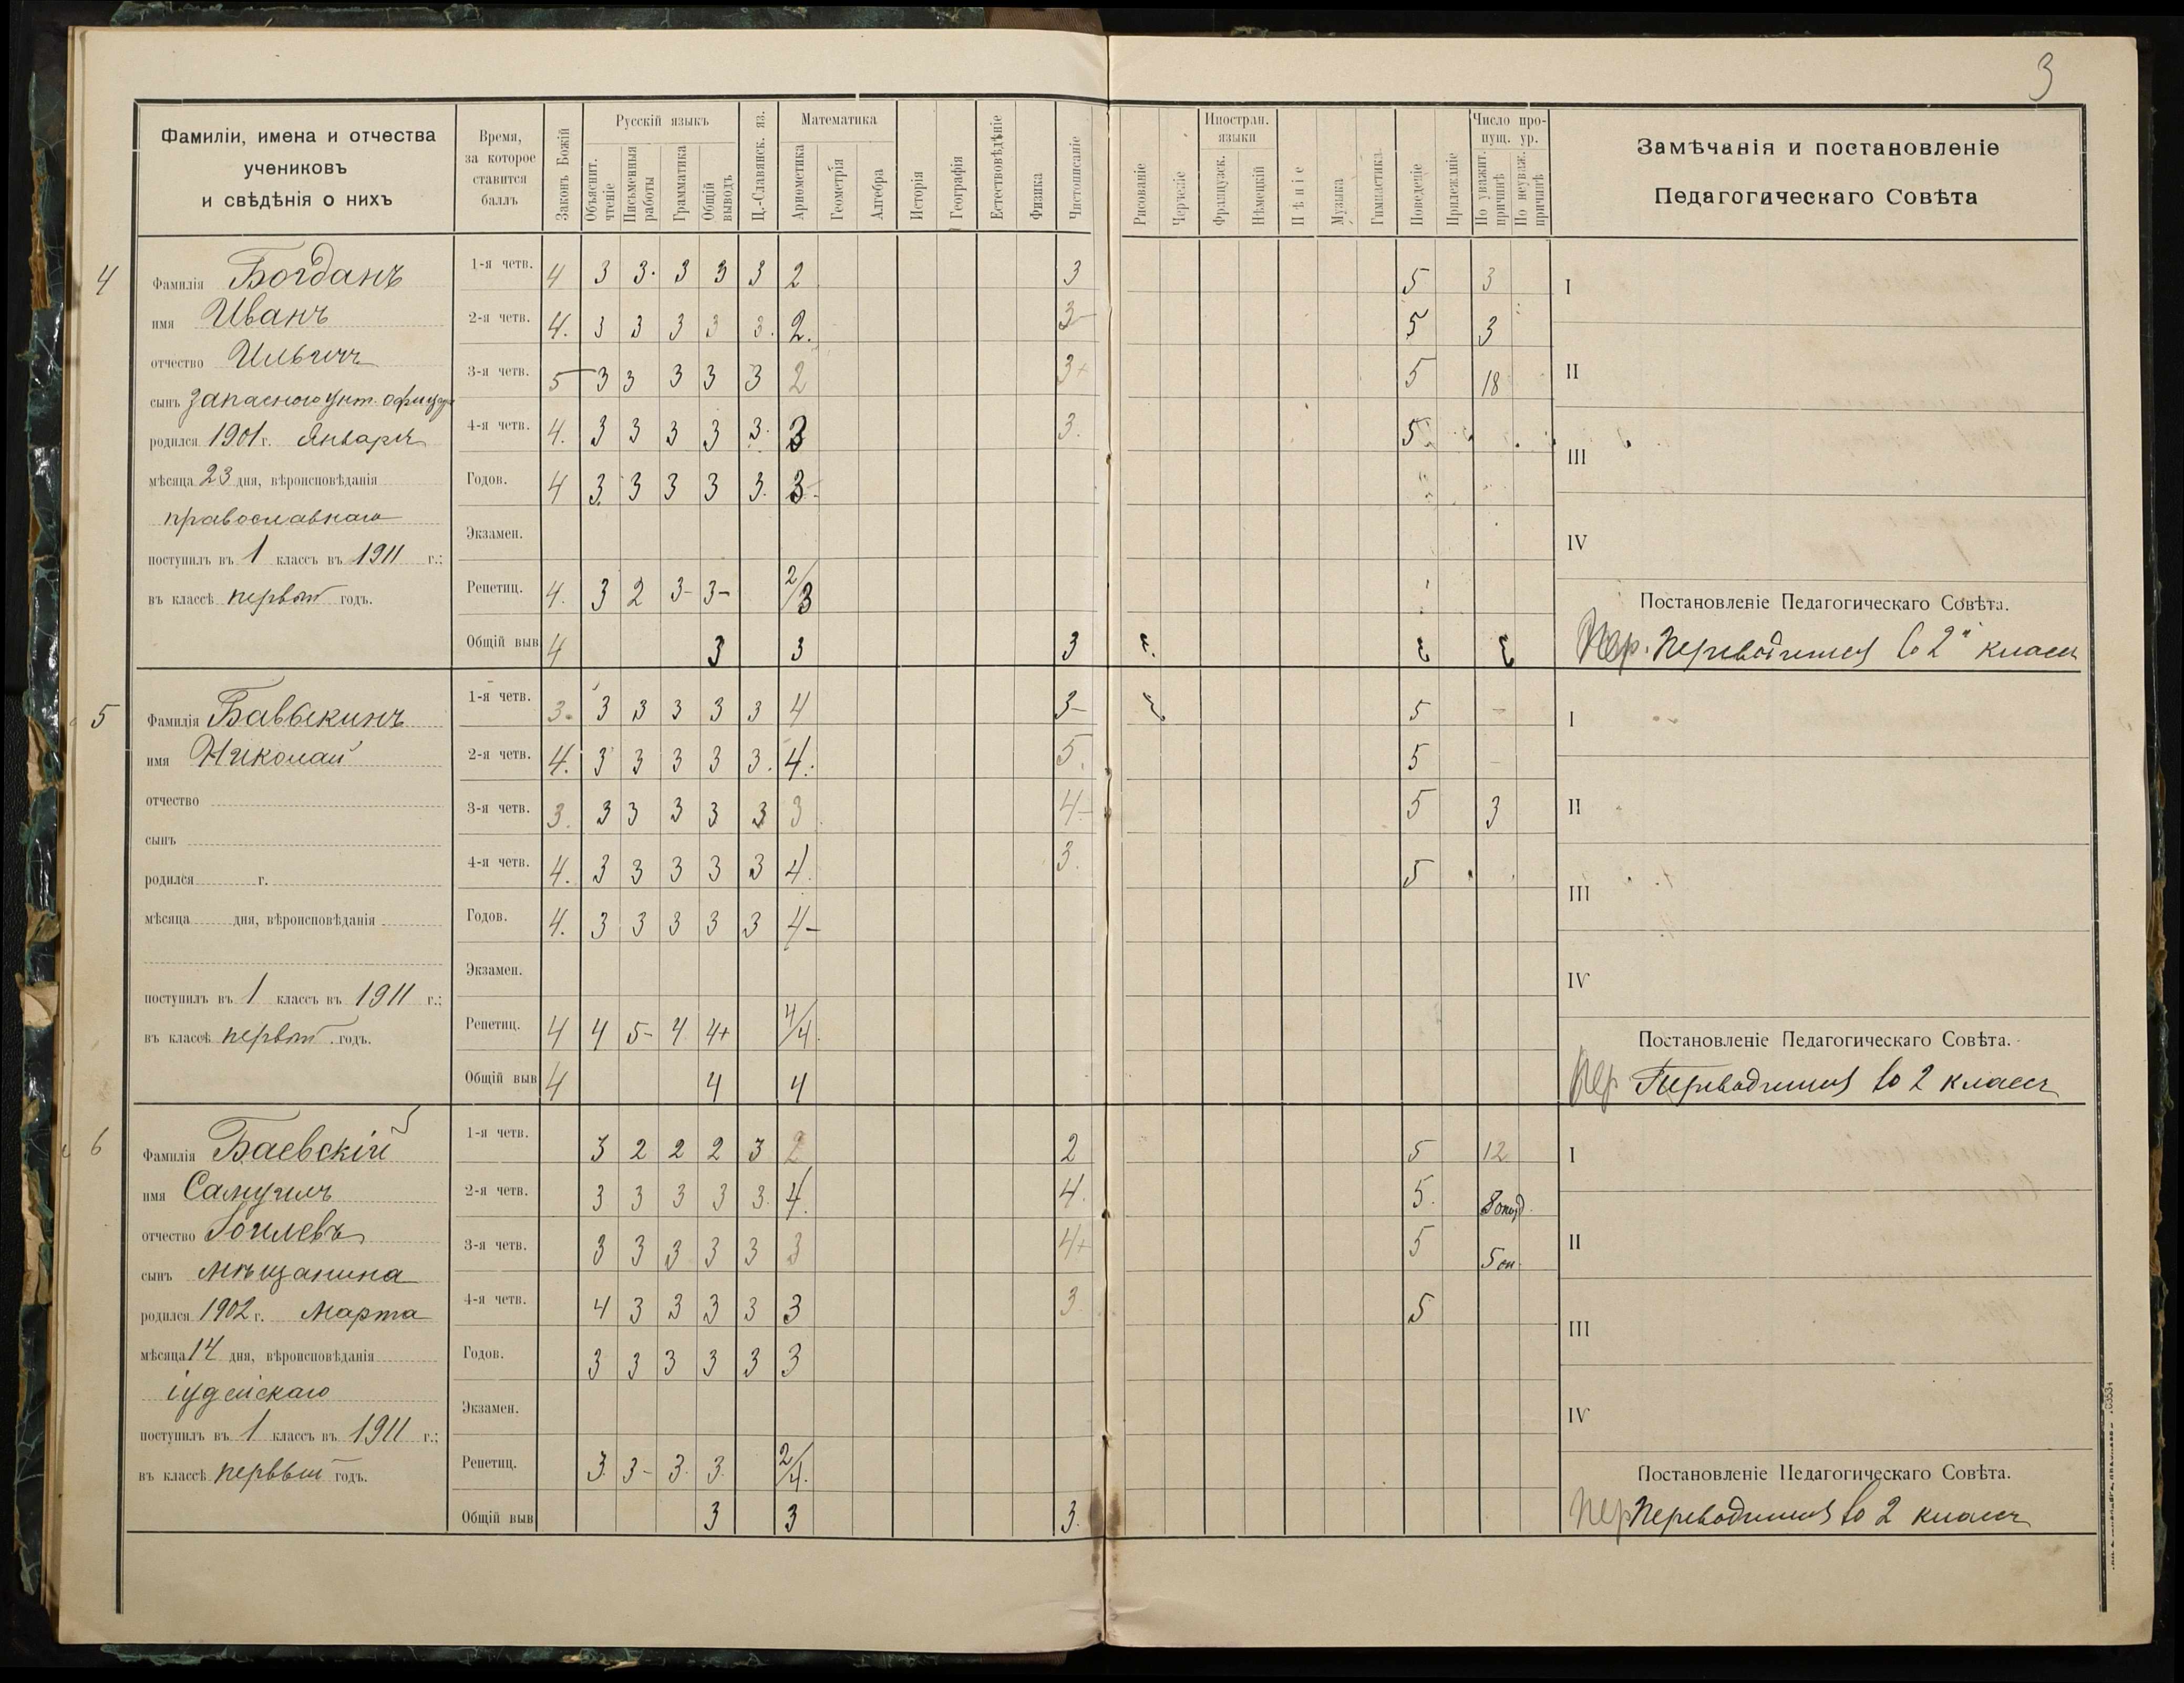 3
Фамиліи, имена и отчества
учениковъ
и свѣдѣнія о нихъ
Время,
за которое
ставится
баллъ
Законъ Божій
Русскій языкъ
Объяснит. чтеніе
Письменныя работы
Грамматика
Общій выводъ
Ц.-Славянск. яз.
Математика
Ариѳметика
Геометрія
Алгебра
Исторія
Географія
Естествовѣдѣніе
Физика
Чистописаніе
Рисованіе
Черченіе
Иностран. языки
Французск.
Нѣмецкій
Пѣніе
Музыка
Гимнастика
Поведеніе
Прилежаніе
Число пропущ. ур.
По уважит. причинѣ
По неуваж. причинѣ
Замѣчанія и постановленіе
Педагогическаго Совѣта
4
Фамилія Богданъ
имя Иванъ
отчество Ильичъ
сынъ запасного унт. офицера
родился 1901 г. Января
мѣсяца 23 дня, вѣроисповѣданія
православнаго
поступилъ въ 1 классъ въ 1911 г.;
въ классѣ первый годъ.
1-я четв. 4 3 3. 3 3 3 2 3 5 3
2-я четв. 4. 3 3 3 3 3. 2. 3- 5 3
3-я четв. 5 3 3 3 3 3 2 3+ 5 18
4-я четв. 4. 3 3 3 3 3. 3 3. 5
Годов. 4 3 3 3 3 3. 3
Экзамен.
Репетиц. 4. 3 2 3- 3- 2/3
Общій выв 4 3 3 3
I
II
III
IV
Постановленіе Педагогическаго Совѣта.
Пер. Переводится во 2й классъ
5
Фамилія Бавыкинъ
имя Николай
отчество
сынъ
родился г.
мѣсяца дня, вѣроисповѣданія
поступилъ въ 1 классъ въ 1911 г.;
въ классѣ первый годъ.
1-я четв. 3. 3 3 3 3 3 4 3- 5 -
2-я четв. 4. 3 3 3 3 3. 4. 5. 5 -
3-я четв. 3. 3 3 3 3 3 3 4- 5 3
4-я четв. 4. 3 3 3 3 3 4. 3. 5
Годов. 4. 3 3 3 3 3 4-
Экзамен.
Репетиц. 4 4 5- 4 4+ 4/4.
Общій выв 4 4 4
I
II
III
IV
Постановленіе Педагогическаго Совѣта.
Пер Переводится во 2 классъ
6
Фамилія Баевскій
имя Самуилъ
отчество
сынъ мѣщанина
родился 1902 г. Марта
мѣсяца 14 дня, вѣроисповѣданія
іудейскаго
поступилъ въ 1 классъ въ 1911 г.;
въ классѣ первый годъ.
1-я четв. 3 2 2 2 3 2 2 5 12
2-я четв. 3 3 3 3 3. 4. 4. 5. 8
3-я четв. 3 3 3 3 3 3 4+ 5 5 оп.
4-я четв. 4 3 3 3 3 3 3. 5
Годов. 3 3 3 3 3 3
Экзамен.
Репетиц. 3. 3- 3. 3. 2/4.
Общій выв 3 3 3.
I
II
III
IV
Постановленіе Педагогическаго Совѣта.
Пер Переводится во 2 классъ